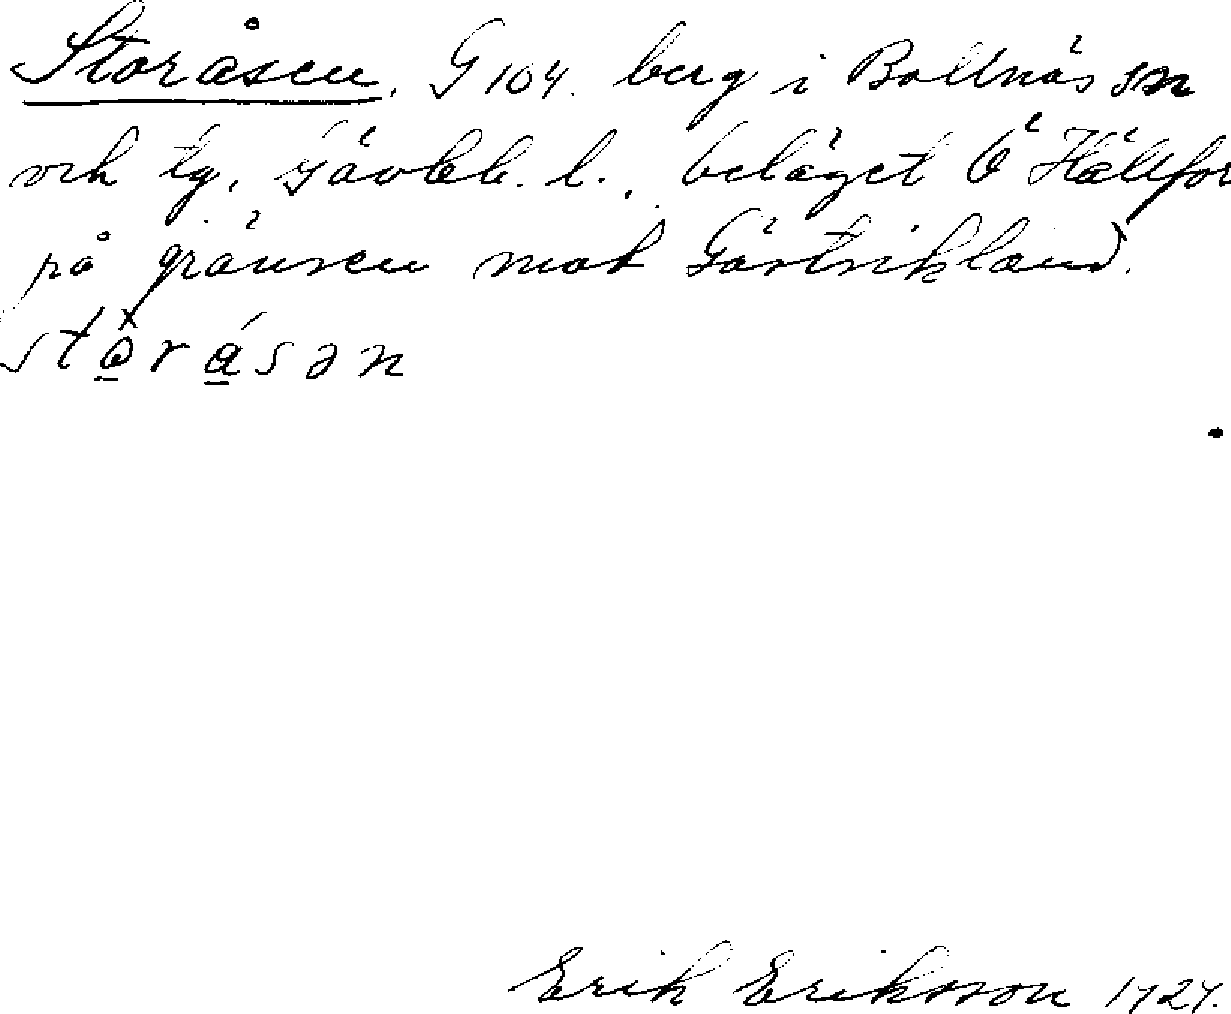 Storåsen. G 104. berg i Bollnäs sn
och tg, Gävleb. l., beläget Ö Hällfor
på gränsen mot Gästrikland.
stọ̄rásən
Erik Eriksson 1727.